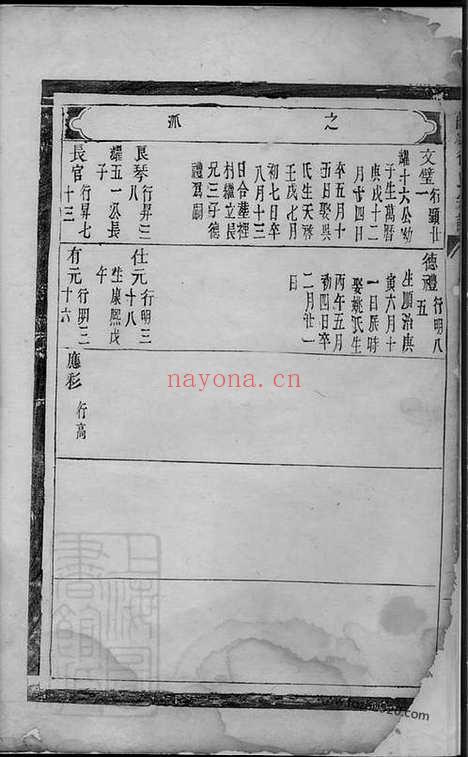 之
派
文璧 行顯廿
一
耀十六公幼
子生萬曆
庚戌十二
月廿四日
卒五月十
五日娶吳
氏生天啓
壬戌七月
初七日卒
八月十三
日合塟裡
村繼立長
兄三子德
禮爲嗣
良琴 行昇三
八
耀五一公長
子
長官 行昇七
十三
德禮 行明八
五
生順治庚
寅六月十
一日辰時
娶姚氏生
丙午五月
初四日卒
二月廿一
日
仕元 行明三
十八
生康熙戊
午
有元 行明三
十六
應彩 行高
上海
書館
nayona.cn